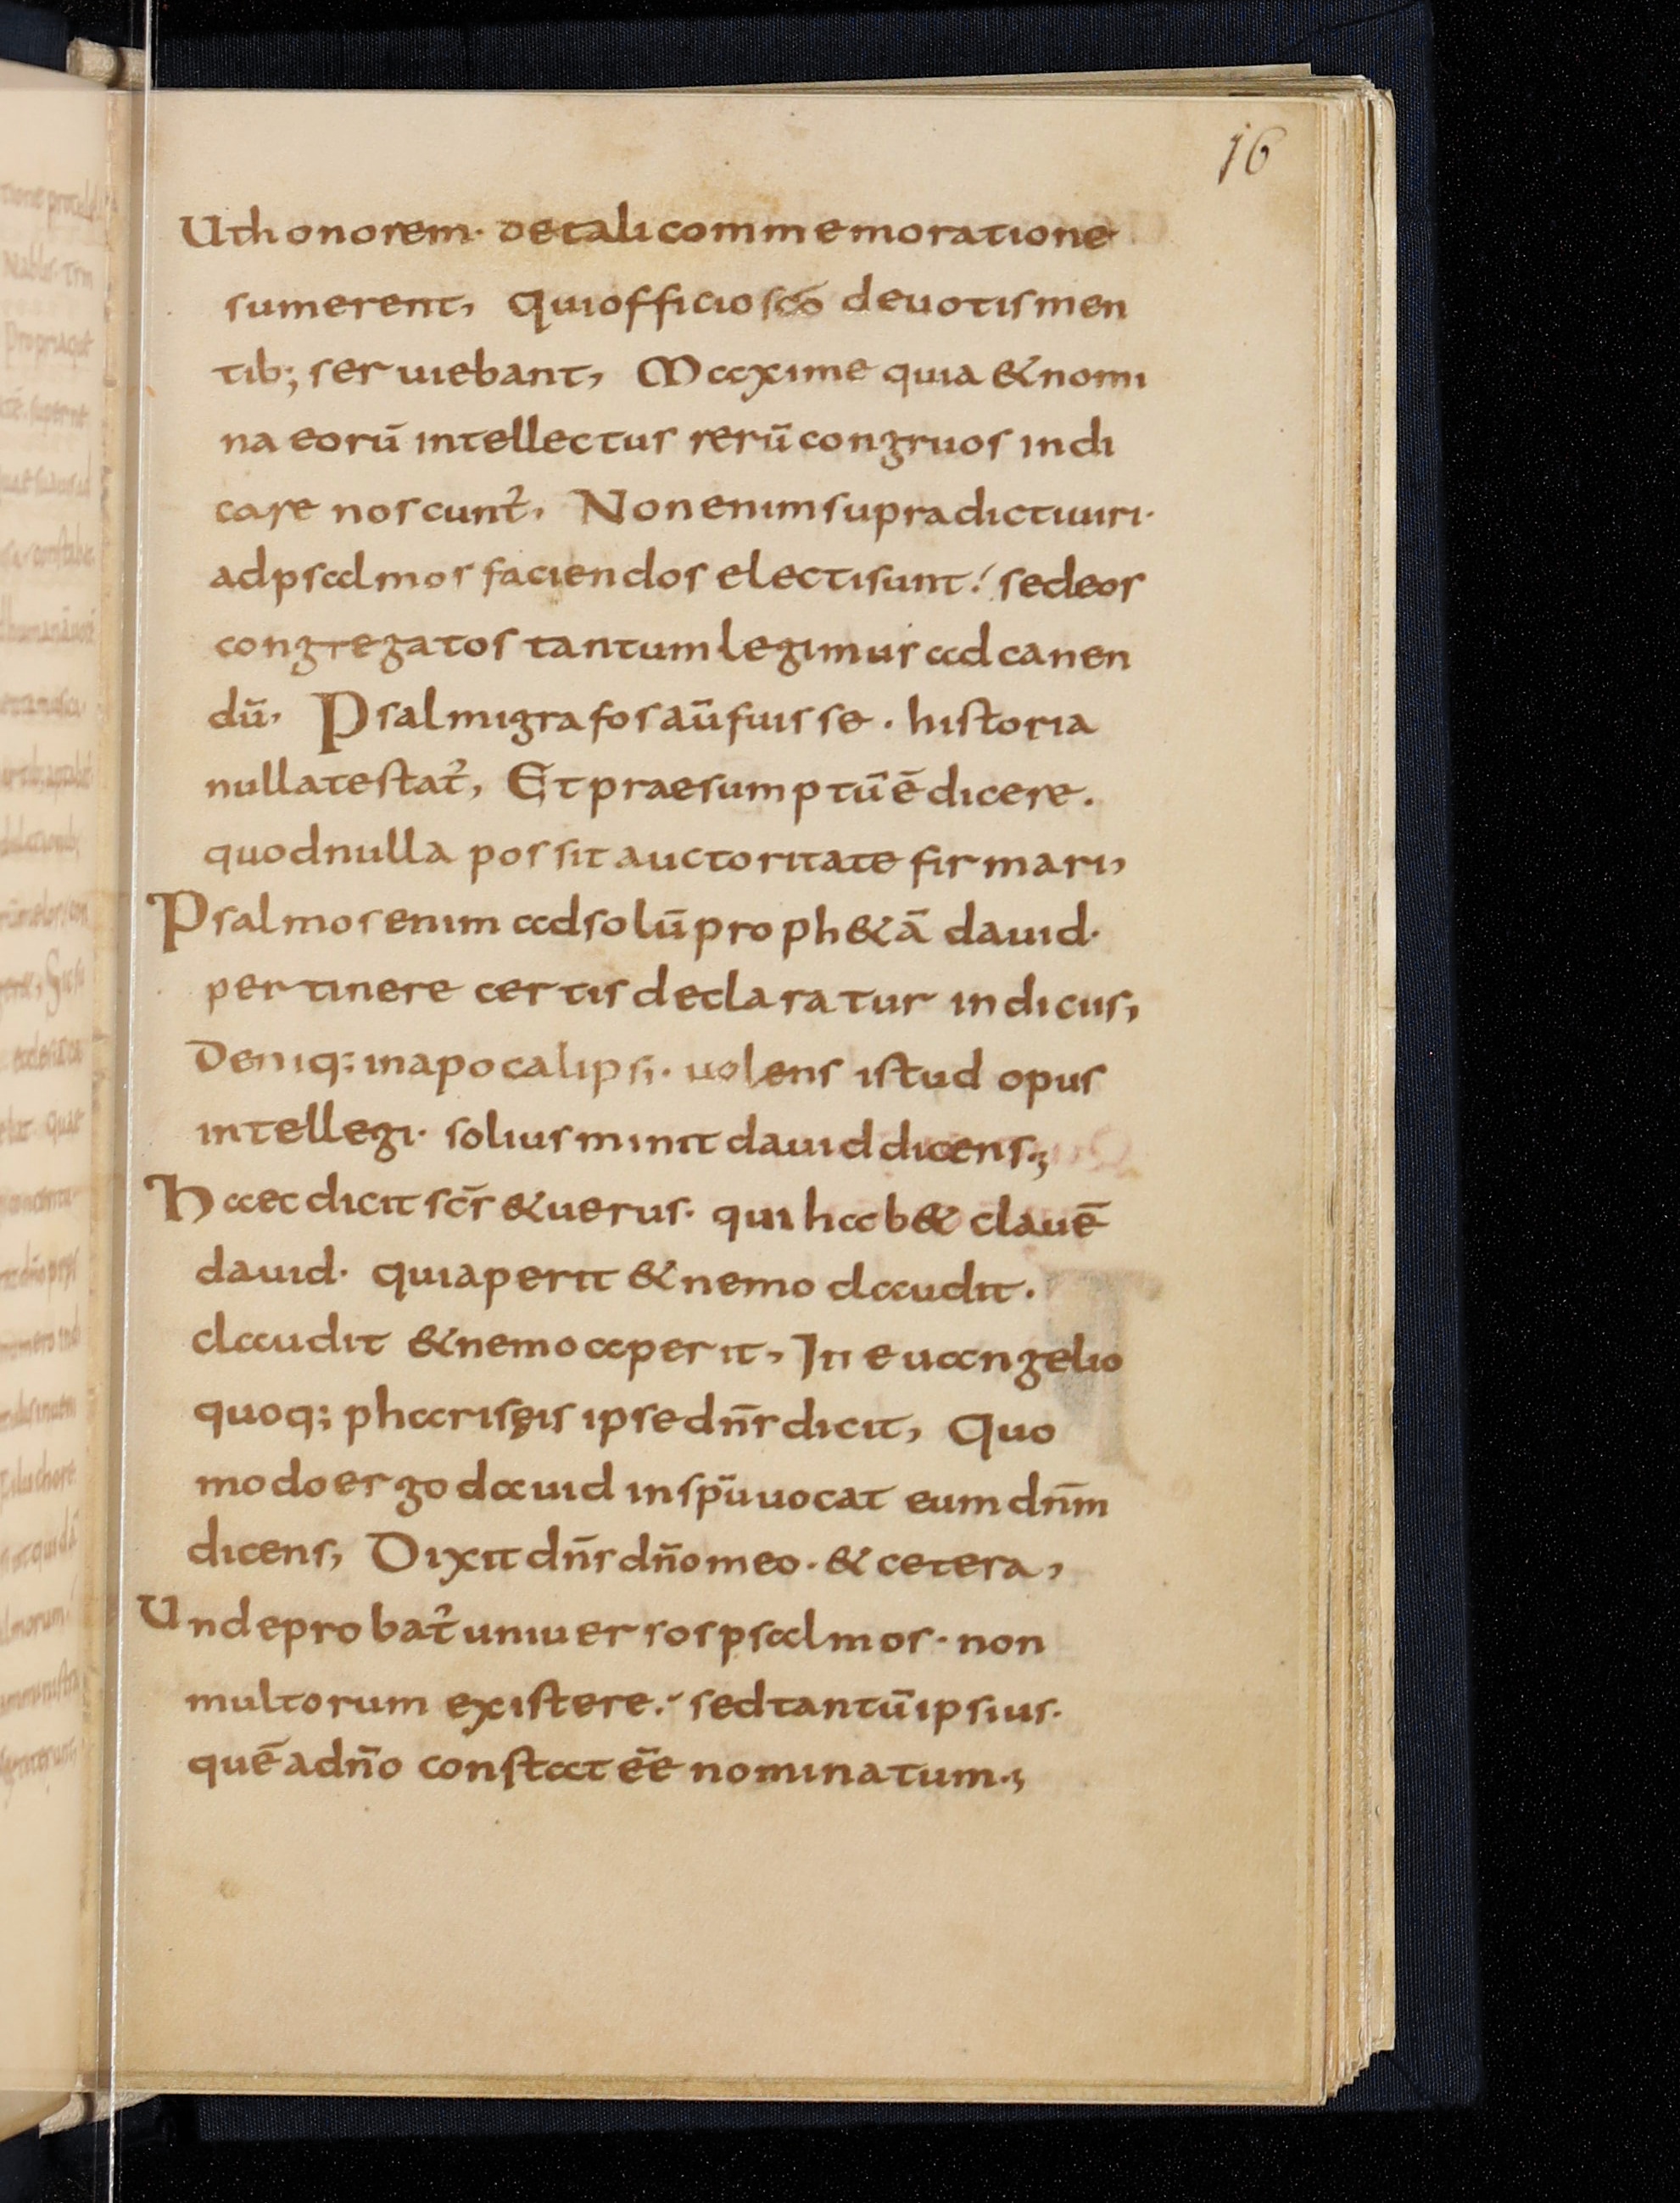 16
Uthonorem· detalicommemoratione
sumerent, quiofficio sc̄o deuotismen
tib; seruiebant, Maxime quia & nomi
na eorū intellectus rerū congruos indi
care noscunt᷑, Nonenimsupradictiuiri·
adpsalmos faciendos electisunt; sedeos
congregatos tantumlegimus adcanen
dū, Psalmigrafos aūfuisse· historia
nullatestat᷑, Etpraesumptū ē dicere.
quodnulla possit auctoritate firmari,
Psalmosenim adsolū proph&ā dauid·
pertinere certis declaratur indiciis,
Deniq; inapocalipsi· uolens istud opus
intellegi· solius minit dauid dicens;
Haec dicit sc̄s & uerus· qui hab& clauē
dauid· quiaperit & nemo claudit·
claudit & nemo aperit, In euangelio
quoq; phariseis ipse dn̄s dicit, Quo
modo ergo dauid in sp̄u uocat eum dn̄m
dicens, Dixit dn̄s dn̄o meo· & cetera,
Undeprobat᷑ uniuersos psalmos· non
multorum existere; sedtantū ipsius·
quē adn̄o constat ēe nominatum;